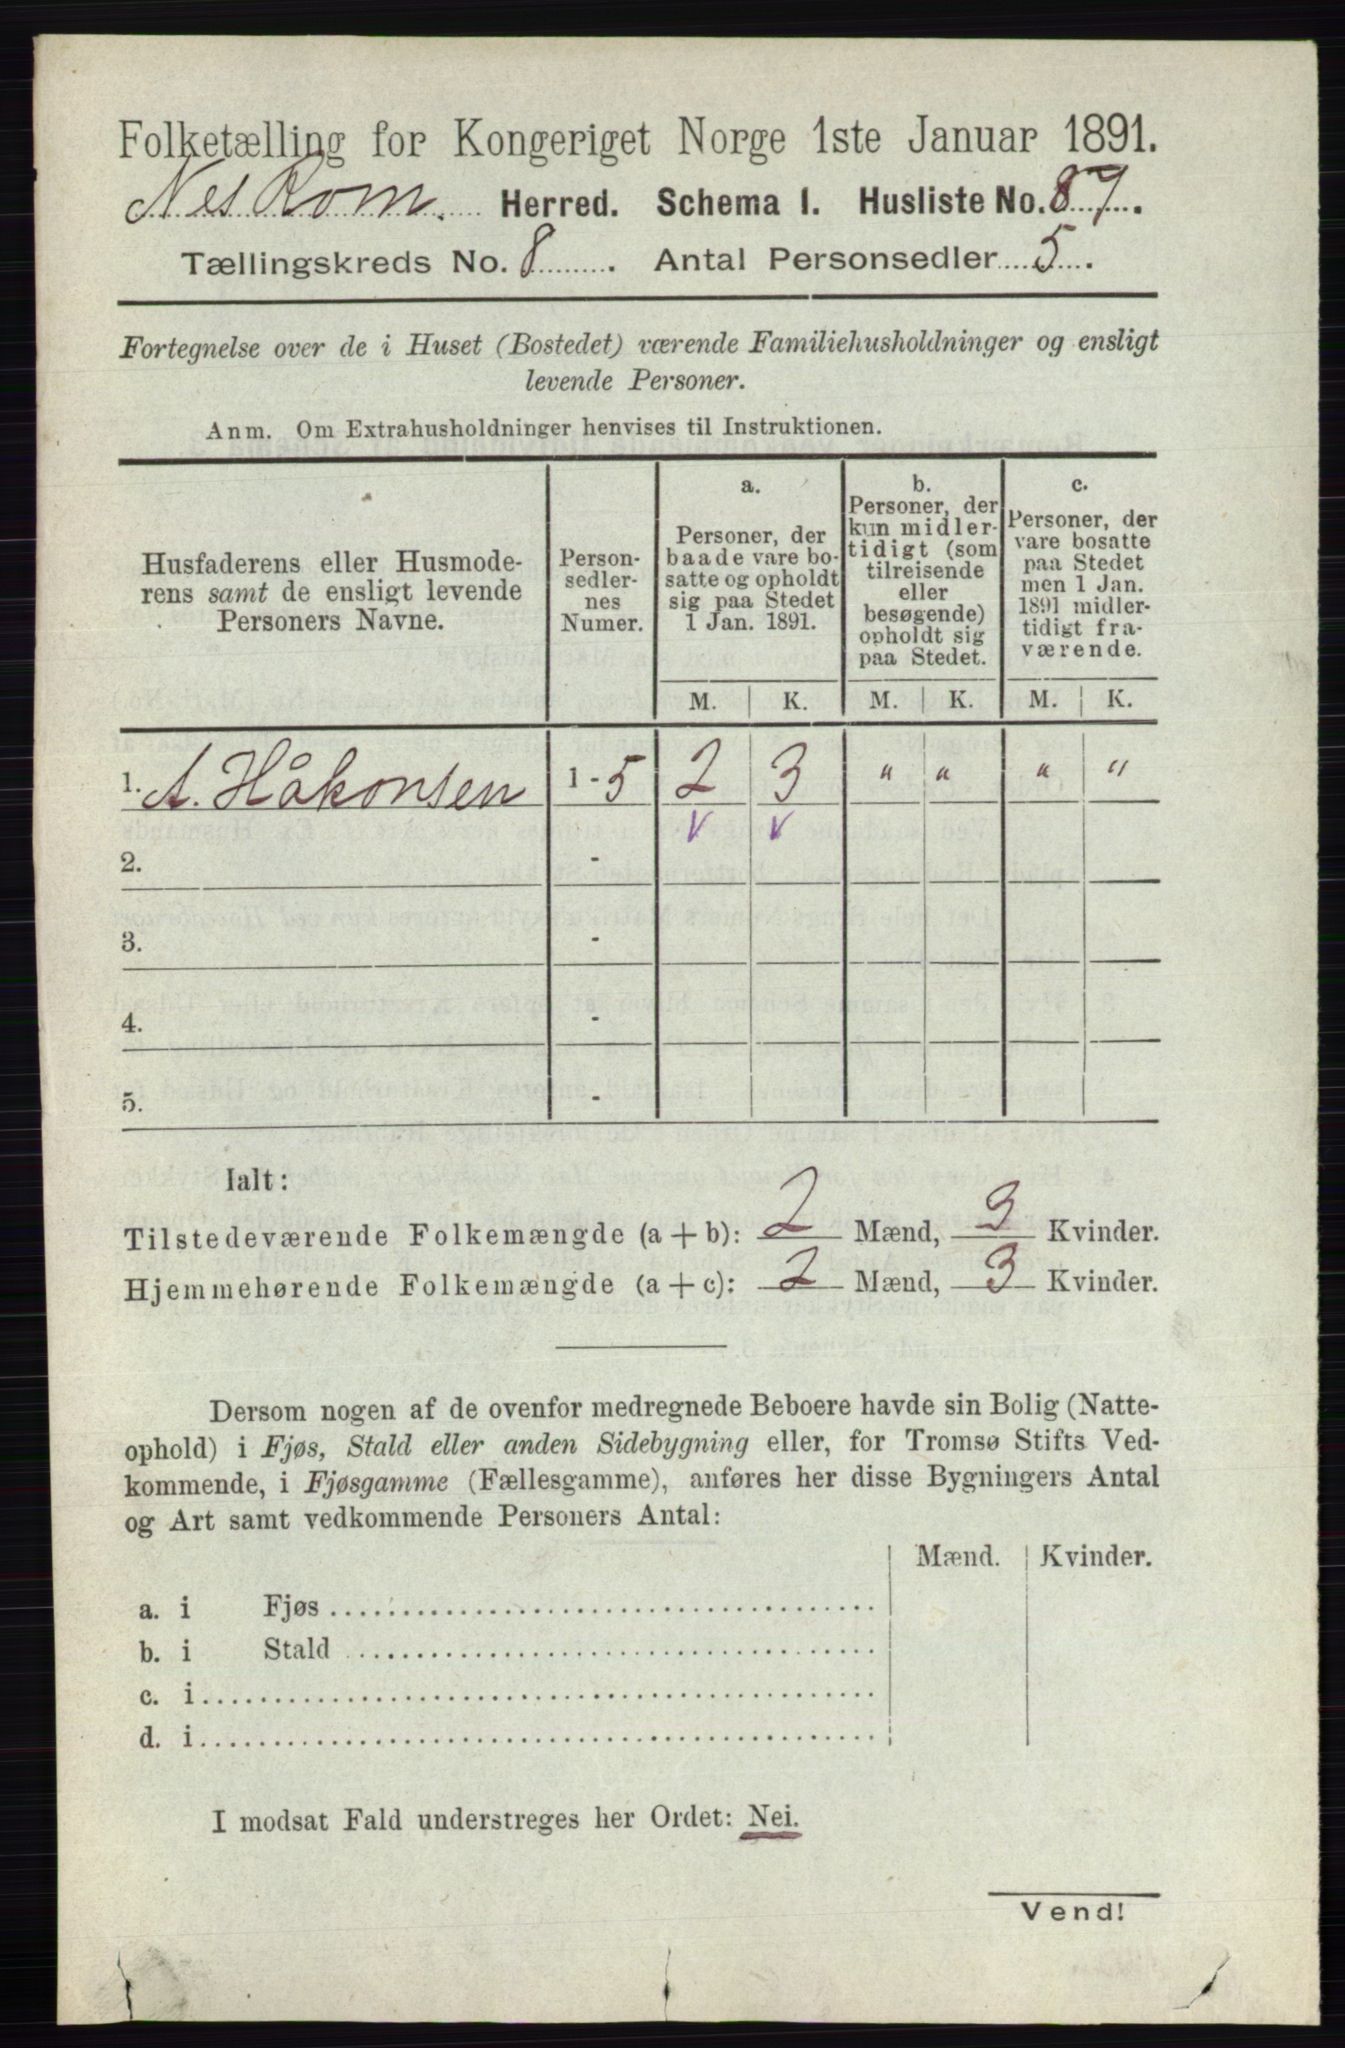 Folketælling for Kongeriget Norge 1ste Januar 1891.
Nes Rom. Herred. Schema I. Husliste No. 87.
Tællingskreds No. 8. Antal Personsedler 5.
Fortegnelse over de i Huset (Bostedet) værende Familiehusholdninger og ensligt
levende Personer.
Anm. Om Extrahusholdninger henvises til Instruktionen.
Husfaderens eller Husmode-
rens samt de ensligt levende
Personers Navne.
Person-
sedler-
nes
Numer.
a.
Personer, der
baade vare bo-
satte og opholdt
sig paa Stedet
1 Jan. 1891.
b.
Personer, der
kun midler-
tidigt (som
tilreisende
eller
besøgende)
opholdt sig
paa Stedet.
c.
Personer, der
vare bosatte
paa Stedet
men 1 Jan.
1891 midler-
tidigt fra-
værende.
M. K. M. K. M. K.
1. A. Håkonsen 1 - 5 2 3 " " " "
2. -
3. -
4. -
5. -
Ialt:
Tilstedeværende Folkemængde (a + b): 2 Mænd, 3 Kvinder.
Hjemmehørende Folkemængde (a + c): 2 Mænd, 3 Kvinder.
Dersom nogen af de ovenfor medregnede Beboere havde sin Bolig (Natte-
ophold) i Fjøs, Stald eller anden Sidebygning eller, for Tromsø Stifts Ved-
kommende, i Fjøsgamme (Fællesgamme), anføres her disse Bygningers Antal
og Art samt vedkommende Personers Antal:
Mænd. Kvinder.
a. i Fjøs
b. i Stald
c. i
d. i
I modsat Fald understreges her Ordet: Nei.
Vend!